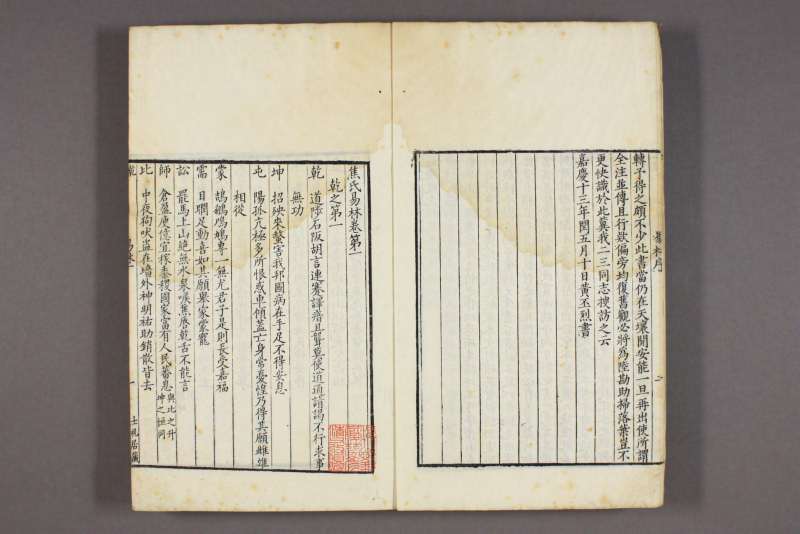 轉予得之頗不少此書當仍在天壤間安能一旦再出使所謂
全注並傳且行欵偏旁均復舊觀必將爲陸勘助掃落葉豈不
更快識於此冀我二三同志搜訪之云
嘉慶十三年閏五月十日黃丕烈書
焦氏易林卷第一
乾之第一
乾 道陟石阪胡言連蹇譯瘖且聾莫使道通請謁不行求事
無功
坤 招殃來螫害我邦國病在手足不得安息
屯 陽孤亢極多所恨惑車傾蓋亡身常憂惶乃得其願雌雄
相從
蒙 鳲鳩鳲鳩專一無尤君子是則長受嘉福
需 目瞤足動喜如其願舉家蒙寵
訟 罷馬上山絶無水泉喉焦脣乾舌不能言
師 倉盈庾億宜稼黍稷國家富有人民蕃息與比之升坤之恒同
比 中夜狗吠盜在墻外神明祐助銷散皆去